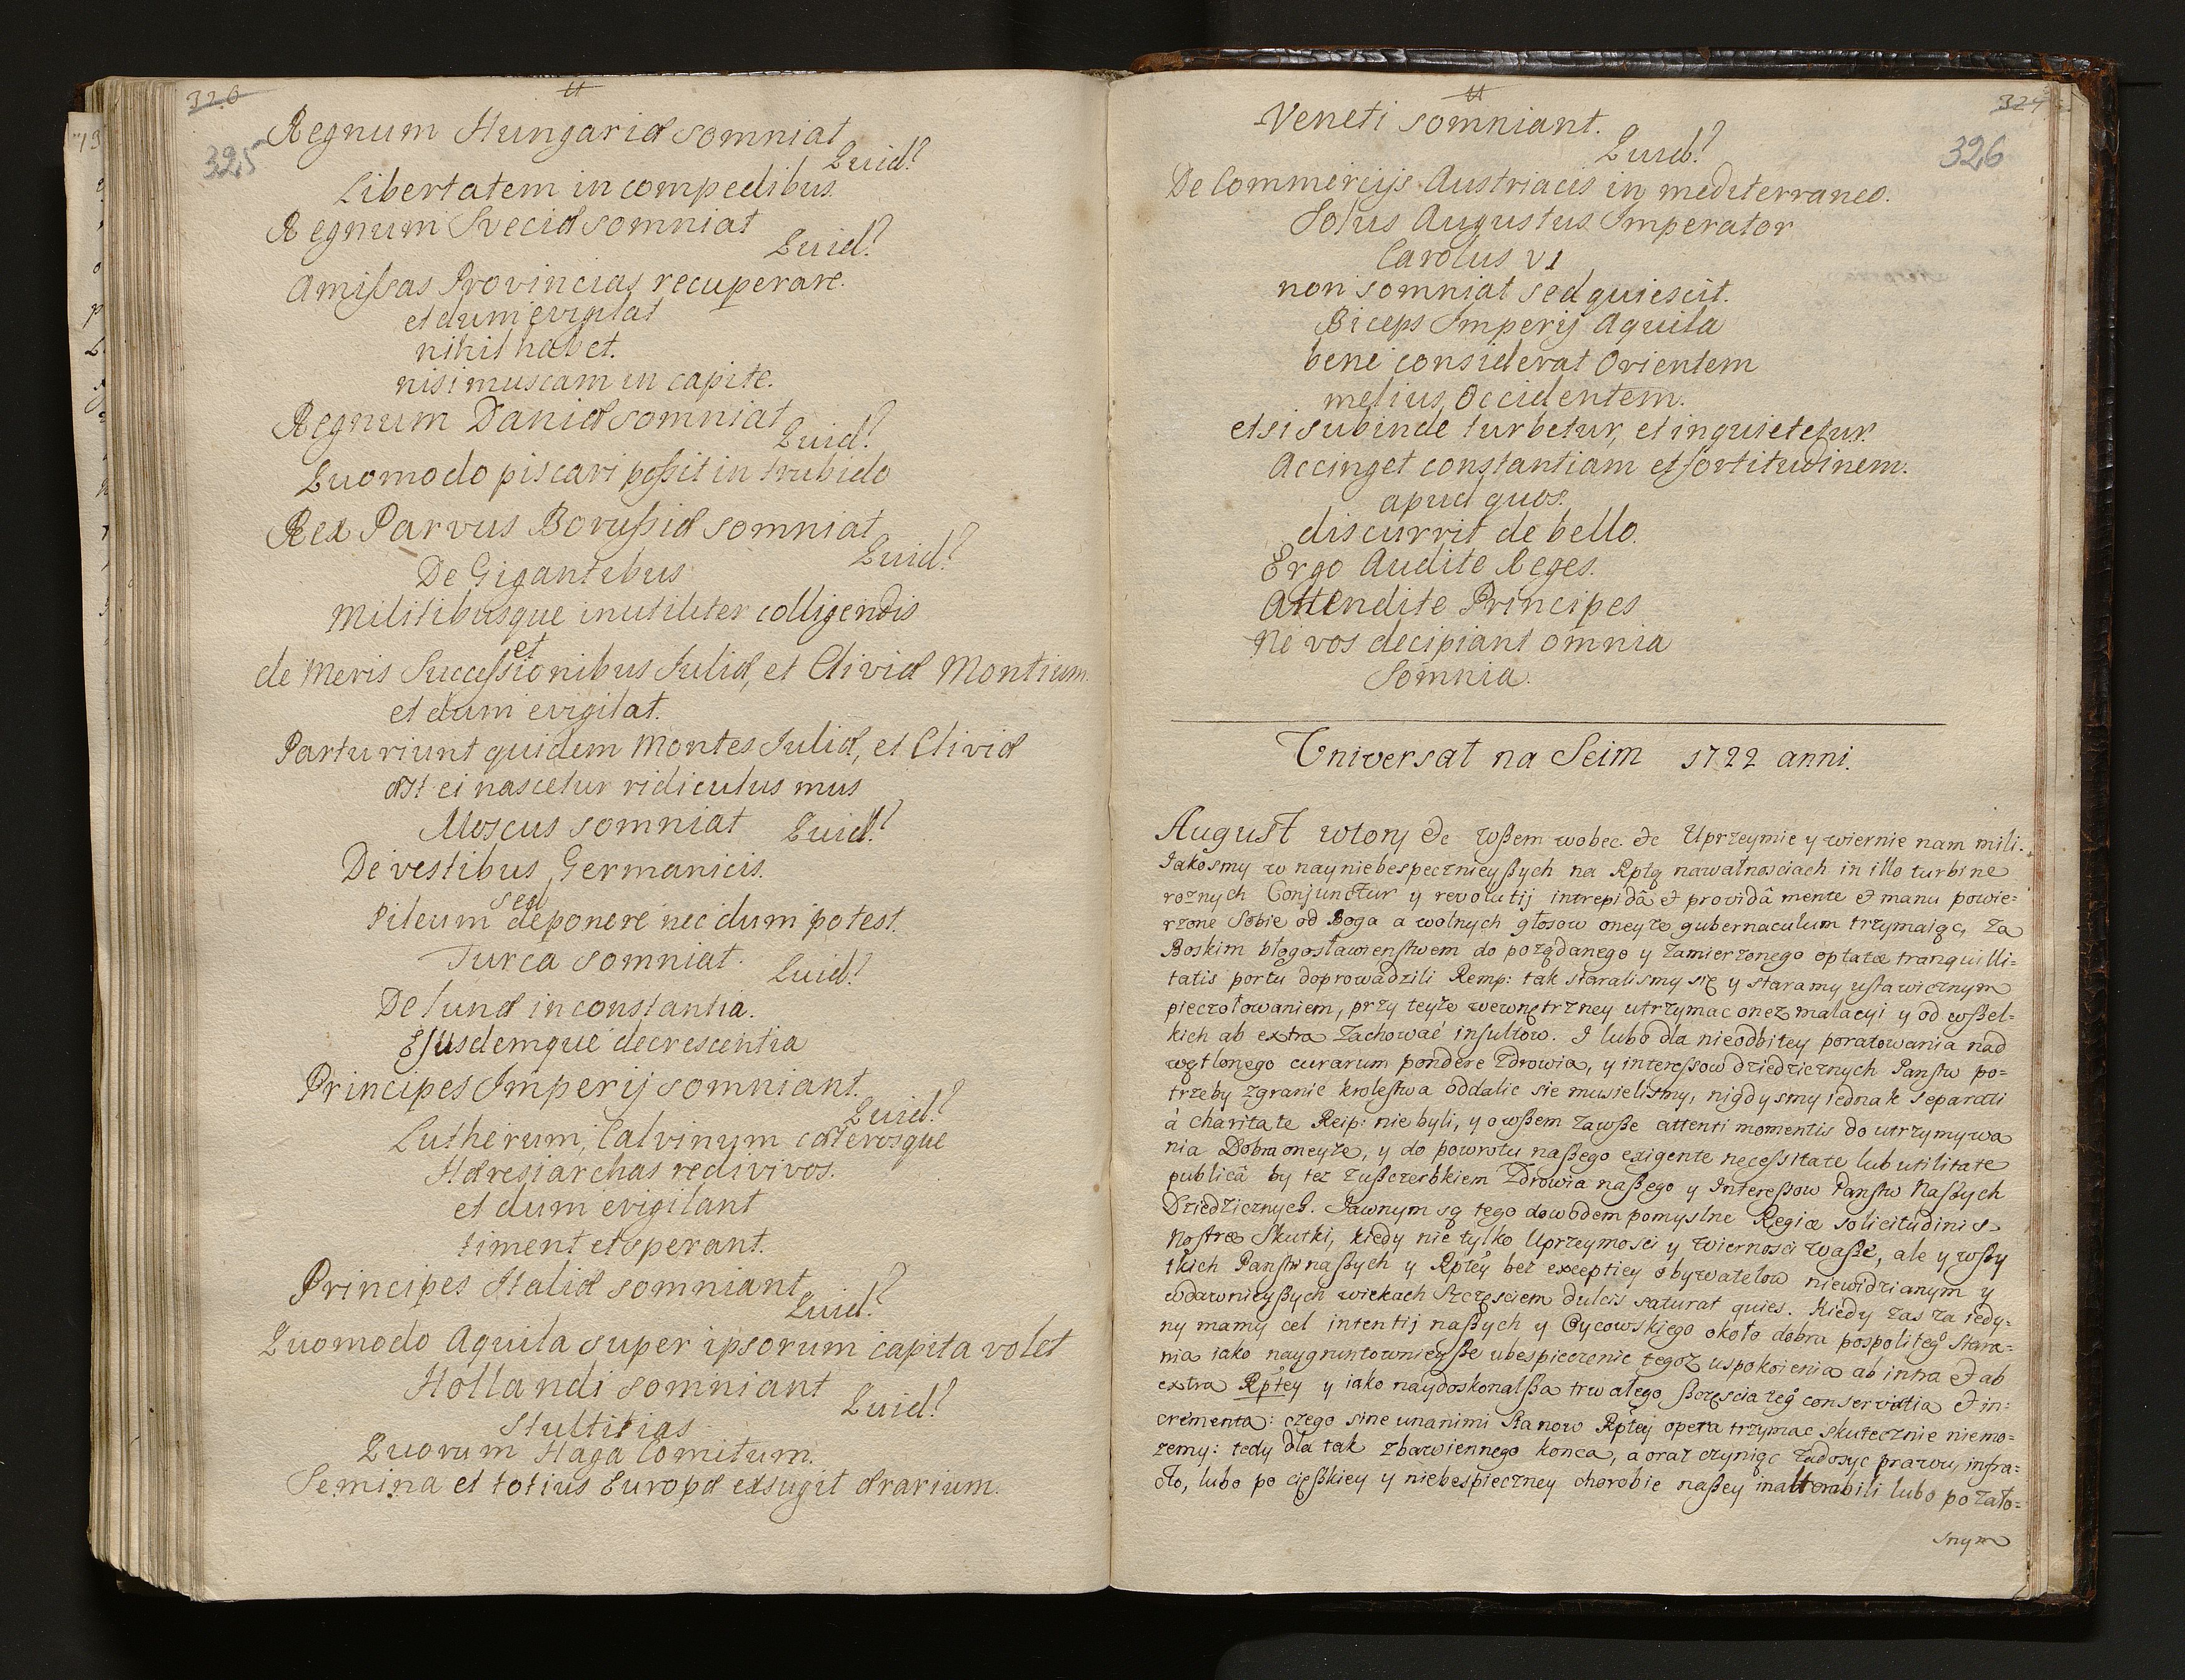 326
325
Regnum Hungariæ somniat
Quid?
Libertatem in compedibus.
Regnum Sveciæ somniat
Quid?
Amißas Provincias recuperare.
et dum evigilat
nihil habet.
nisi muscam in capite.
Regnum Daniæ somniat
Quid?
Quomodo piscari poßit in trubido
Rex Parvus Borußiæ somniat
Quid?
De Gigantibus
Militibusque inutiliter colligendis
et
de Meris Succeßionibus Juliæ, et Cliviæ Montium.
et dum evigilat.
Parturiunt quidem Montes Juliæ, et Cliviæ
ast ei nascetur ridiculus mus
Moscus somniat Quid?
De vestibus Germanicis.
sed
Pileum deponere nec dum potest.
Turca somniat. Quid?
De lunæ inconstantia.
Ejusdemque decrescentia
Principes Imperij somniant.
Quid?
Lutherum, Calvinum cæterosque
Hæresiarchas redivivos.
et dum evigilant
timent et sperant.
Principes Italiæ somniant
Quid?
Quomodo Aquila super ipsorum capita volet
Hollandi somniant
Quid?
Stultitias
Quorum Haga Comitum.
Semina et totius Europæ exsugit ærarium.
326
Veneti somniant.
Quid?
De Commercijs Austriacis in mediterraneo.
Solus Augustus Imperator
Carolus VI
non somniat sed quiescit.
Biceps Imperij Aquila
bene considerat Orientem
melius Occidentem.
etsi subinde turbetur, et inquietetur.
Accinget constantiam et fortitudinem.
apud quos.
discurrit de bello.
Ergo Audite Reges.
Attendite Principes
Ne vos decipiant omnia
Somnia.
Universał na Seim 1722 anni.
August wtory &c wßem wobec &c Uprzeymie y wiernie nam mili.
Jakosmy w nayniebespecznieyßych na Rptą nawałnosciach in illo turbine
roznych Conjunctur y revolutij intrepidâ et providâ mente et manu powie=
rzone Sobie od Boga a wolnych głosow oneyze gubernaculum trzymaiąc, za
Boskim błogosławienstwem do poządanego y zamierzonego optatæ tranquilli=
tatis portu doprowadzili Remp: tak staralismy się y staramy ustawicznym
pieczołowaniem, przy teyze wewnętrzney utrzymac onez malacyi y od wßel-
kich ab extra zachować insultow. I lubo dla nieodbitey poratowania nad
wętlonego curarum pondere zdrowia, y interessow dziedzicznych Panstw po=
trzeby zgranic krolestwa oddalic sie musielismy, nigdysmy iednak separati
à charitate Reip: nie byli, y owßem zawße attenti momentis do utrzymywa
nia Dobra oneyze, y do powrotu naßego exigente necessitate lub utilitate
publicâ by tez zußczerbkiem Zdrowia naßego y Interessow Panstw Naßych
Dziedzicznych. Jawnym są tego dowodem pomyslne Regiæ solicitudinis
Nostræ Skutki, kiedy nie tylko Uprzeymosci y Wiernosci Waße, ale y wßy
tkich Panstw naßych y Rptey bez exceptiey obywatelow niewidzianym y
wdawnieyßych wiekach szczęsciem dulcis saturat quies. Kiedy zas za iedy=
ny mamy cel intentij naßych y Oycowskiego około dobra pospoliteg° stara=
nia iako naygruntownieyße ubespieczenie tegoz uspokoienia ab intra et ab
extra Rptey y iako naydoskonalßa trwałego ßczęscia teg° conservatia et in=
crementa: czego sine unanimi Stanow Rptey opera trzymac skutecznie niemo=
zemy: tedy dla tak zbawiennego konca, a oraz czyniąc zadosyc prawu, infra=
cto, lubo po cięßkiey y niebespieczney chorobie naßey inalterabili lubo po zało=
snym